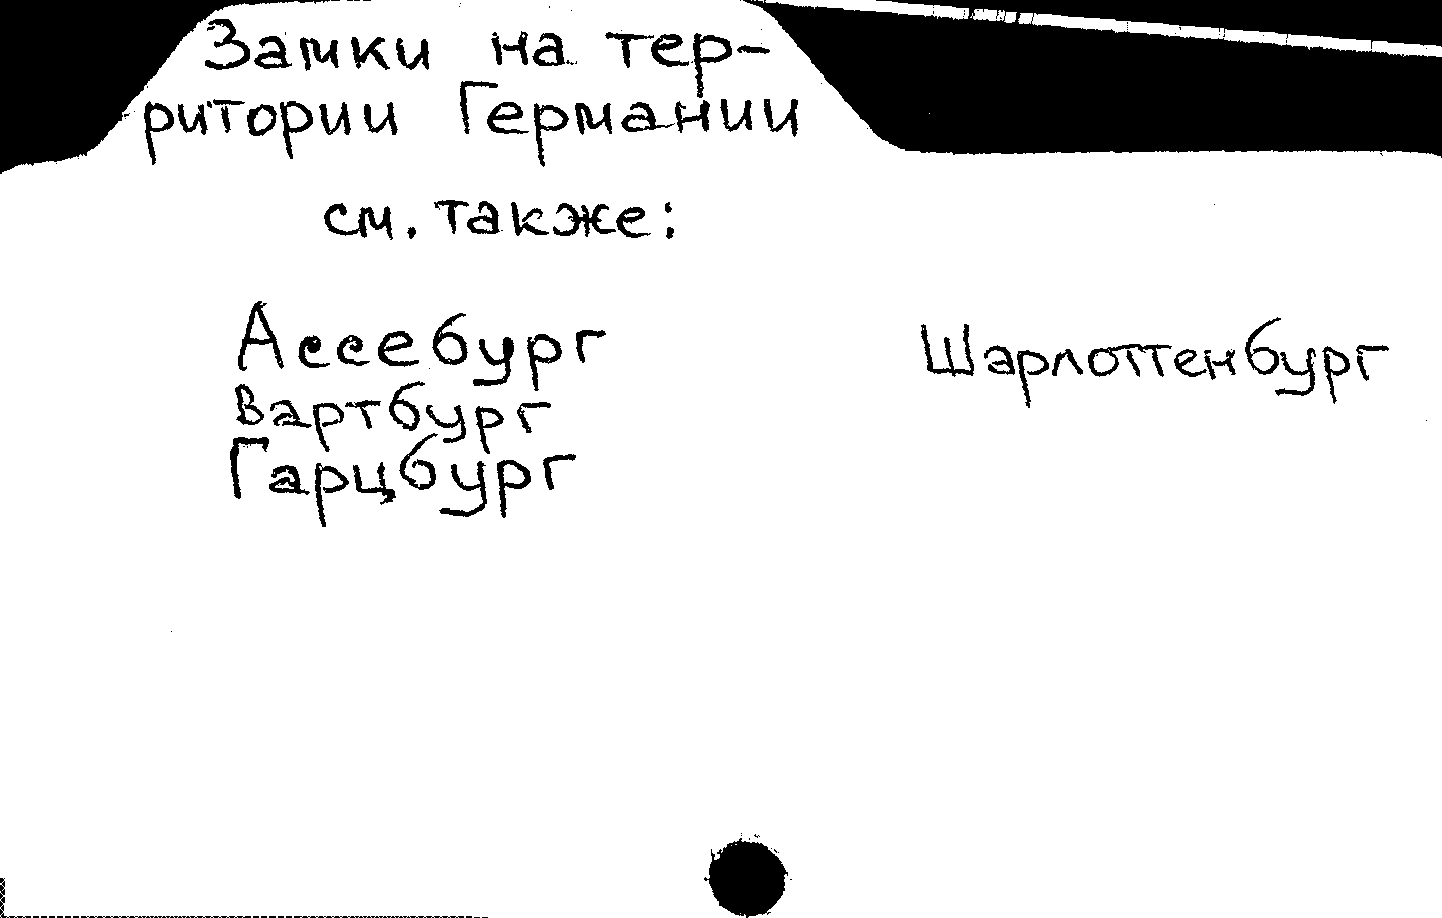 Замки на тер-
ритории Германии
см. также:
Ассебург
Вартбург
Гарцбург
Шарлоттенбург